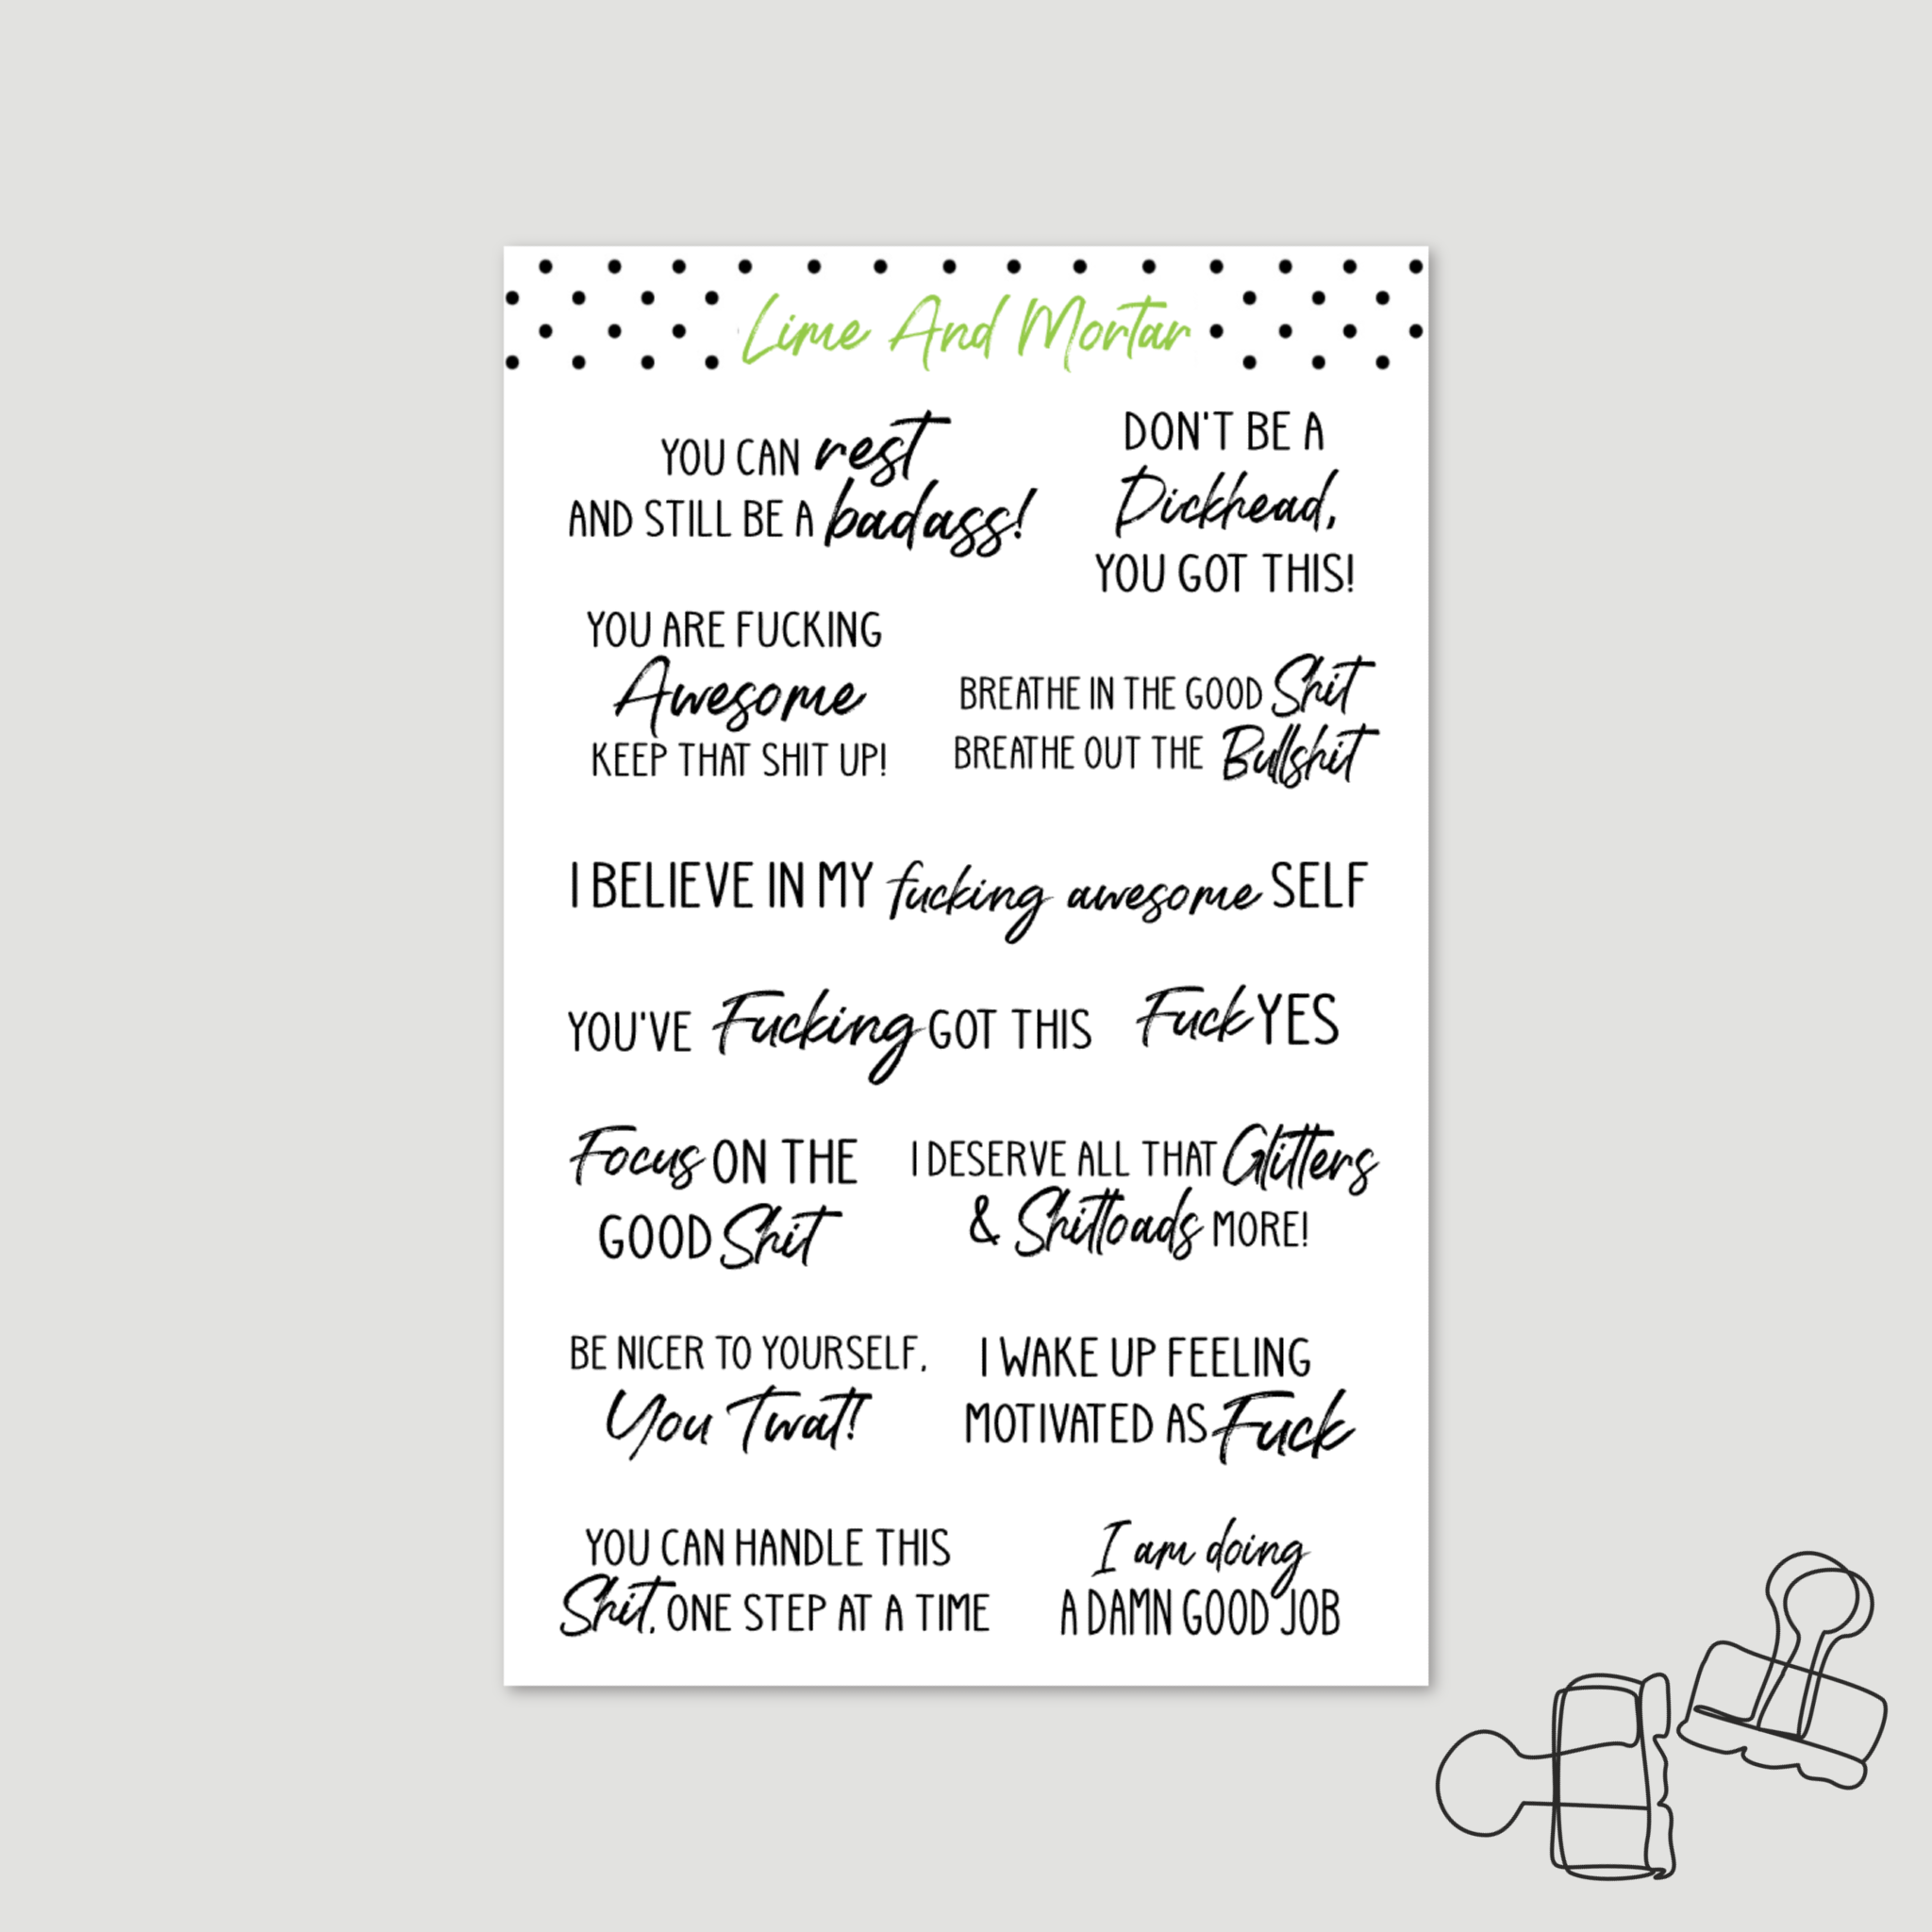 Lime And Mortar
YOU CAN rest
AND STILL BE A badass!
DON'T BE A
Dickhead,
YOU GOT THIS!
YOU ARE FUCKING
Awesome
KEEP THAT SHIT UP!
BREATHE IN THE GOOD Shit
BREATHE OUT THE Bullshit
I BELIEVE IN MY fucking awesome SELF
YOU'VE Fucking GOT THIS
Fuck YES
Focus ON THE
GOOD Shit
I DESERVE ALL THAT Glitters
& Shitloads MORE!
BE NICER TO YOURSELF,
You Twat!
I WAKE UP FEELING
MOTIVATED AS Fuck
YOU CAN HANDLE THIS
Shit, ONE STEP AT A TIME
I am doing
A DAMN GOOD JOB